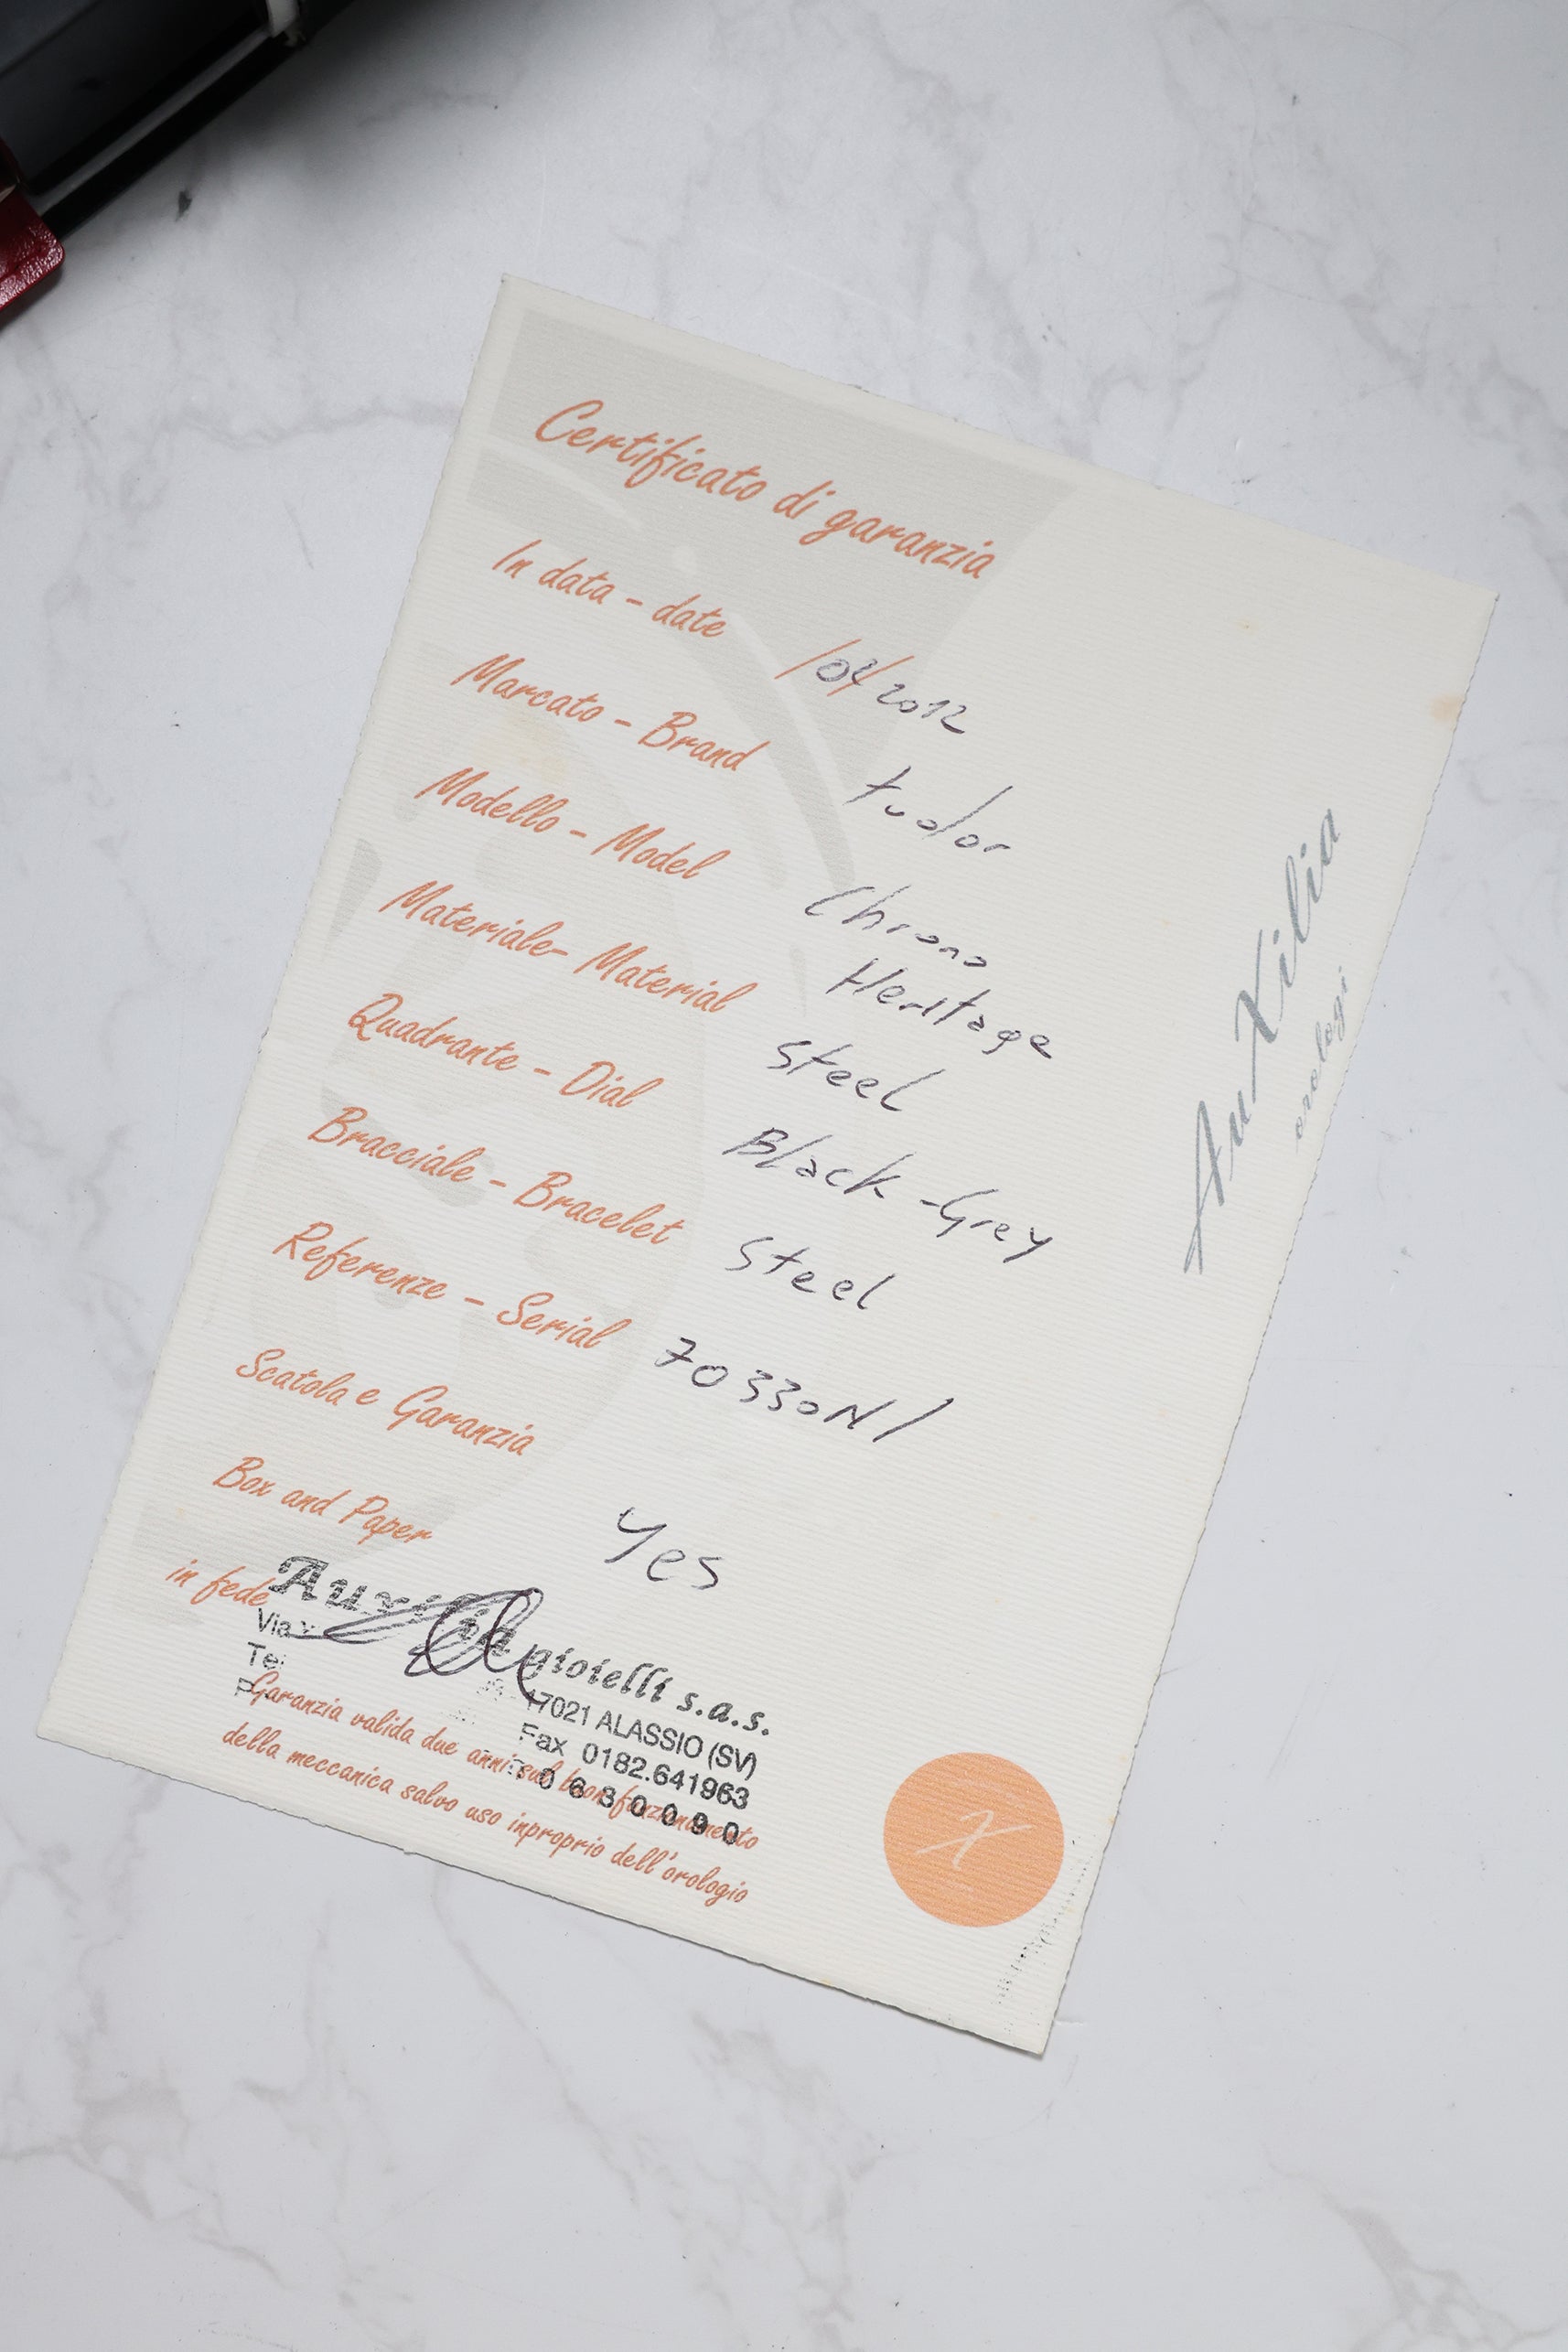 Certificato di garanzia
In data - date /04/2012
Marcato - Brand tudor
Modello - Model Chrono
Heritage
Materiale- Material Steel
Quadrante - Dial Black-Grey
Bracciale - Bracelet Steel
Referenze - Serial 70330N/
Scatola e Garanzia
Box and Paper Yes
in fede
Auxilia gioielli s.a.s.
Via
17021 ALASSIO (SV)
Fax 0182.641963
Garanzia valida due anni sul buon funzionamento
della meccanica salvo uso inproprio dell'orologio
X
AuXilia
orologi